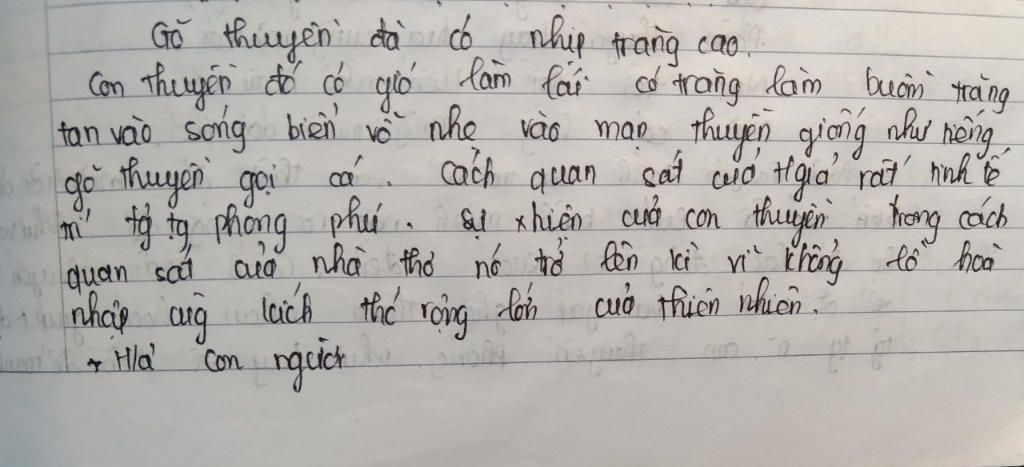 Gõ thuyền đà có nhịp trăng cao.
Con thuyền đó có gió làm lái có trăng làm buồm trăng
tan vào sóng biển vỗ nhẹ vào mạn thuyền giống như tiếng
gõ thuyền gọi cá. Cách quan sát cuả tgiả rất tinh tế
trí tg tg phong phú. Sự xhiện cuả con thuyền trong cách
quan sát cuả nhà thơ nó trở lên kì vĩ khổng lồ hoà
nhập cùg kích thớ rộng lớn cuả thiên nhiên.
+ H/ả con người